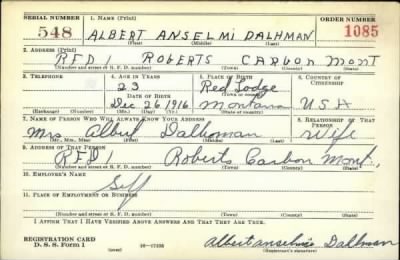 SERIAL NUMBER 1. NAME (Print) ORDER NUMBER
548 ALBERT ANSELMI DALHMAN 1085
(First) (Middle) (Last)
2. ADDRESS (Print)
RFD 1 ROBERTS CARBON MONT
(Number and street or R. F. D. number) (Town) (County) (State)
3. TELEPHONE 4. AGE IN YEARS 5. PLACE OF BIRTH 6. COUNTRY OF CITIZENSHIP
23 Red Lodge
DATE OF BIRTH (Town or county)
Dec 26 1916 Montana USA
(Exchange) (Number) (Mo.) (Day) (Yr.) (State or country)
7. NAME OF PERSON WHO WILL ALWAYS KNOW YOUR ADDRESS 8. RELATIONSHIP OF THAT PERSON
Mrs Albert Dalhman Wife
(Mr., Mrs., Miss) (First) (Middle) (Last)
9. ADDRESS OF THAT PERSON
RFD 1 Roberts Carbon Mont.
(Number and street or R. F. D. number) (Town) (County) (State)
10. EMPLOYER'S NAME
Self
11. PLACE OF EMPLOYMENT OR BUSINESS
(Number and street or R. F. D. number) (Town) (County) (State)
I AFFIRM THAT I HAVE VERIFIED ABOVE ANSWERS AND THAT THEY ARE TRUE.
REGISTRATION CARD
D. S. S. Form 1 16—17105 Albert anselmie Dallman
(Registrant's signature)